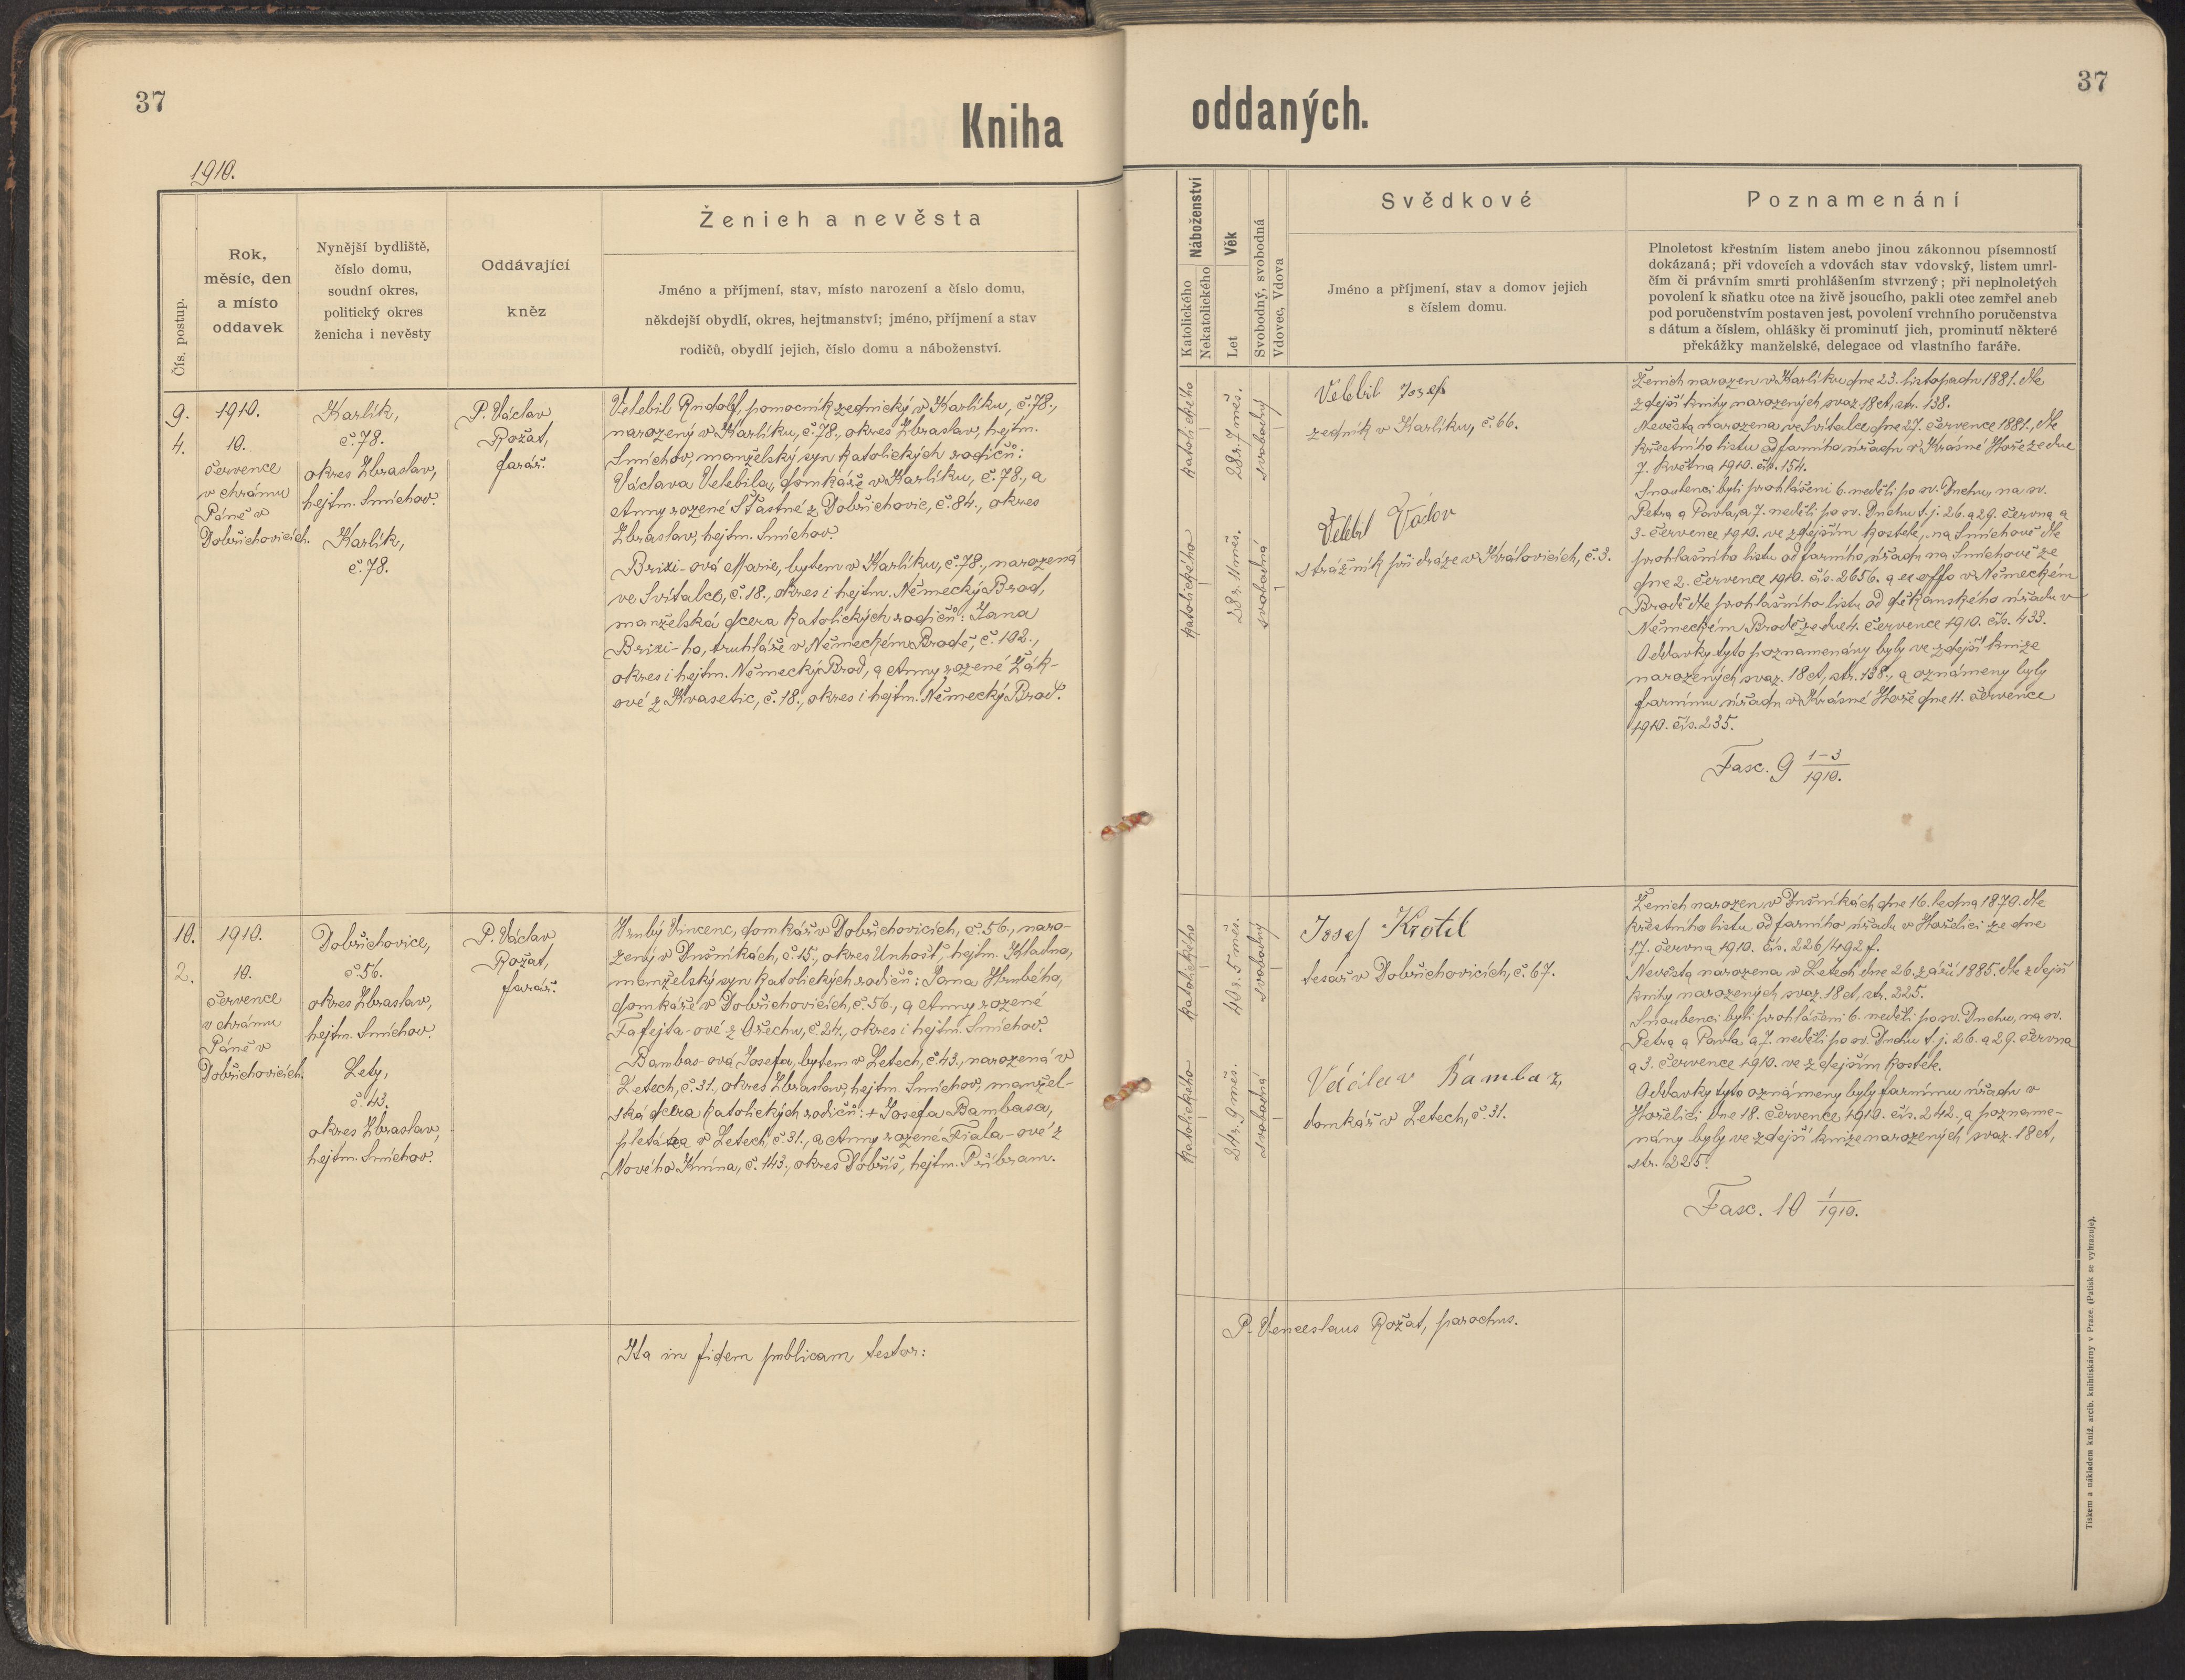 37
Kniha
1910.
Čís. postup.
Rok,
měsíc, den
a místo
oddavek
Nynější bydliště,
číslo domu,
soudní okres,
politický okres
ženicha i nevěsty
Oddávající
kněz
Ženich a nevěsta
Jméno a příjmení, stav, místo narození a číslo domu,
někdejší obydlí, okres, hejtmanství; jméno, příjmení a stav
rodičů, obydlí jejich, číslo domu a náboženství.
9.
4.
1910.
10.
července
v chrámu
Páně v
Dobřichovicích.
Karlík,
č. 78.
okres Zbraslav,
hejtm. Smíchov.
Karlík,
č. 78.
P. Václav
Rožat,
farář.
Velebil Rudolf, pomocník zednický v Karlíku, č. 78.,
narozený v Karlíku, č. 78., okres Zbraslav, hejtm.
Smíchov, manželský syn katolických rodičů:
Václava Velebila, domkáře v Karlíku, č. 78., a
Anny rozené Šťastné z Dobřichovic, č. 84., okres
Zbraslav, hejtm. Smíchov.
Brixi-ová Marie, bytem v Karlíku, č. 78., narozená
ve Svitalce, č. 18., okres i hejtm. Německý Brod,
manželská dcera katolických rodičů: Jana
Brixi-ho, truhláře v Německém Brodě, č. 102.,
okres i hejtm. Německý Brod, a Anny rozené Žák-
ové z Kvasetic, č. 18., okres i hejtm. Německý Brod.
10.
2.
1910.
10.
července
v chrámu
Páně v
Dobřichovicích.
Dobřichovice,
č. 56.
okres Zbraslav,
hejtm. Smíchov.
Lety,
č. 43.
okres Zbraslav,
hejtm. Smíchov.
P. Václav
Rožat,
farář.
Hrubý Vincenc, domkář v Dobřichovicích, č. 56., naro-
zený v Dušníkách, č. 15., okres Unhošť, hejtm. Kladno,
manželský syn katolických rodičů: Jana Hrubého,
domkáře v Dobřichovicích, č. 56., a Anny rozené
Fafejta-ové z Ořechu, č. 24., okres i hejtm. Smíchov.
Bambas-ová Josefa, bytem v Letech, č. 43., narozená v
Letech, č. 31., okres Zbraslav, hejtm. Smíchov, manžel-
ská dcera katolických rodičů: + Josefa Bambasa,
v Letech, č. 31., a Anny rozené Fiala-ové z
Nového Knína, č. 143., okres Dobříš, hejtm. Příbram.
Ita in fidem publicam testor:
37
oddaných.
Náboženství
Katolického
Nekatolického
Věk
Let
Svobodný, svobodná
Vdovec, Vdova
Svědkové
Jméno a příjmení, stav a domov jejich
s číslem domu.
Poznamenání
Plnoletost křestním listem anebo jinou zákonnou písemností
dokázaná; při vdovcích a vdovách stav vdovský, listem umrl-
čím či právním smrti prohlášením stvrzený; při neplnoletých
povolení k sňatku otce na živě jsoucího, pakli otec zemřel aneb
pod poručenstvím postaven jest, povolení vrchního poručenstva
s dátum a číslem, ohlášky či prominutí jich, prominutí některé
překážky manželské, delegace od vlastního faráře.
katolického
28 r. 7 měs.
svobodný
katolického
28 r. 11 měs.
svobodná
Velebil Josef
zedník v Karlíku, č. 66.
Velebil
strážník při dráze v Královicích, č. 3.
Ženich narozen v Karlíku dne 23. listopadu 1881. dle
zdejší knihy narozených svaz. 18 A, str. 138.
Nevěsta narozena ve Svitalce dne 27. července 1881., dle
křestního listu od farního úřadu v Krásné Hoře ze dne
7. května 1910. čís. 154.
Snoubenci byli prohlášeni 6. neděli po sv. Duchu, na sv.
Petra a Pavla, a 7. neděli po sv. Duchu t. j. 26. a 29. června a
3. července 1910. ve zdejším kostele, na Smíchově dle
prohlašního listu od farního úřadu na Smíchově ze
dne 2. července 1910. čís. 2656. a ex offo v Německém
Brodě dle prohlašního listu od děkanského úřadu v
Německém Brodě ze dne 4. července 1910. čís. 433.
Oddavky tyto poznamenány byly ve zdejší knize
narozených svaz. 18 A, str. 138., a oznámeny byly
farnímu úřadu v Krásné Hoře dne 11. července
1910. čís. 235.
Fasc. 9 1-3/1910.
katolického
40 r. 5 měs.
svobodný
katolického
24 r. 9 měs.
svobodná
Josef Krotil
tesař v Dobřichovicích, č. 67.
Václav Bambaz,
domkář v Letech, č. 31.
Ženich narozen v Dušníkách dne 16. ledna 1870. dle
křestního listu od farního úřadu v Hořelici ze dne
17. června 1910. čís. 226/492 f.
Nevěsta narozena v Letech dne 26. září 1885. dle zdejší
knihy narozených svaz. 18 A, str. 225.
Snoubenci byli prohlášeni 6. neděli po sv. Duchu, na sv.
Petra a Pavla a 7. neděli po sv. Duchu t. j. 26. a 29. června
a 3. července 1910. ve zdejším kostele.
Oddavky tyto oznámeny byly farnímu úřadu v
Hořelici dne 18. července 1910. čís. 242., a pozname-
nány byly ve zdejší knize narozených svaz. 18 A,
str. 225.
Fasc. 10 1/1910.
P. Venceslaus Rožat, parochus.
Tiskem a nákladem kníž. arcib. knihtiskárny v Praze. (Patisk se vyhrazuje).